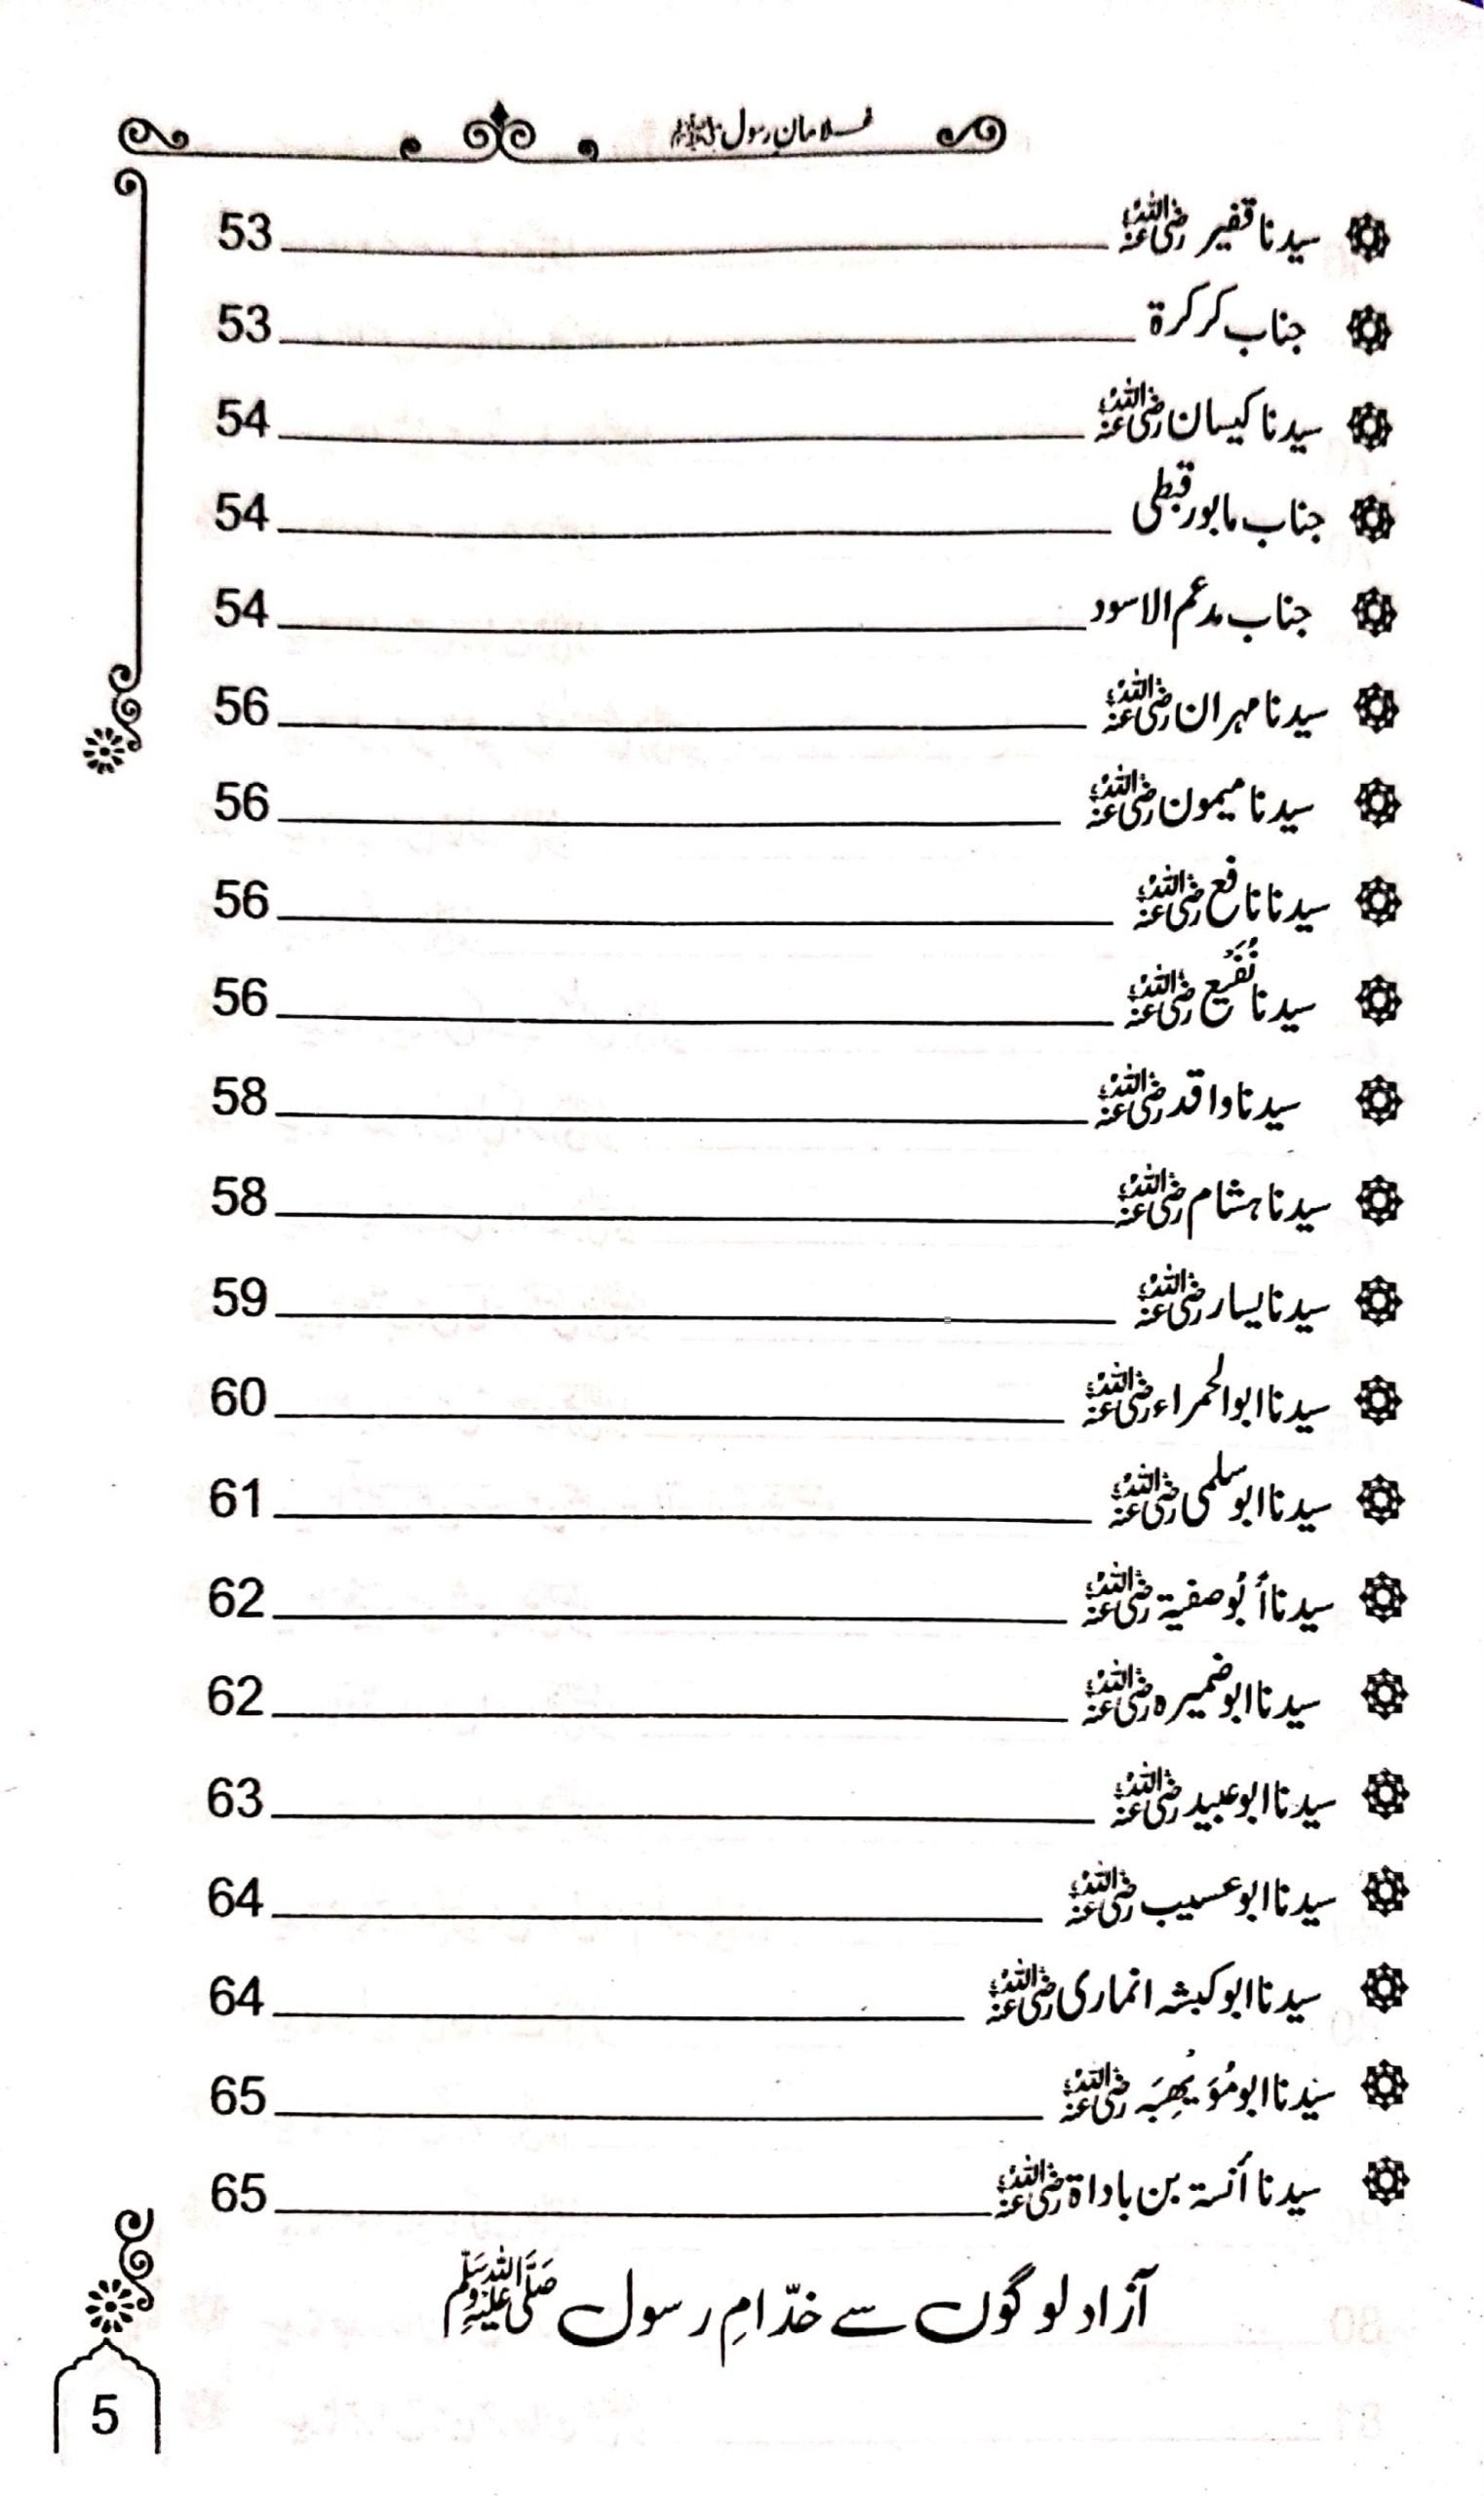 غلامان رسول ﷺ
سیدنا قفیر رضی اللہ عنہ 53
جناب کرکرة 53
سیدنا کیسان رضی اللہ عنہ 54
جناب مابور قبطی 54
جناب مدعم الاسود 54
سیدنا مہران رضی اللہ عنہ 56
سیدنا میمون رضی اللہ عنہ 56
سیدنا نافع رضی اللہ عنہ 56
سیدنا نُفَیع رضی اللہ عنہ 56
سیدنا واقد رضی اللہ عنہ 58
سیدنا ہشام رضی اللہ عنہ 58
سیدنا یسار رضی اللہ عنہ 59
سیدنا ابوالحمراء رضی اللہ عنہ 60
سیدنا ابو سلمی رضی اللہ عنہ 61
سیدنا أبُو صفیة رضی اللہ عنہ 62
سیدنا ابو ضمیرہ رضی اللہ عنہ 62
سیدنا ابو عبید رضی اللہ عنہ 63
سیدنا ابو عسیب رضی اللہ عنہ 64
سیدنا ابو کبشہ انماری رضی اللہ عنہ 64
سیدنا ابو مُوَیْھِبَہ رضی اللہ عنہ 65
سیدنا أنسة بن باداة رضی اللہ عنہ 65
آزاد لوگوں سے خدّامِ رسول ﷺ
5